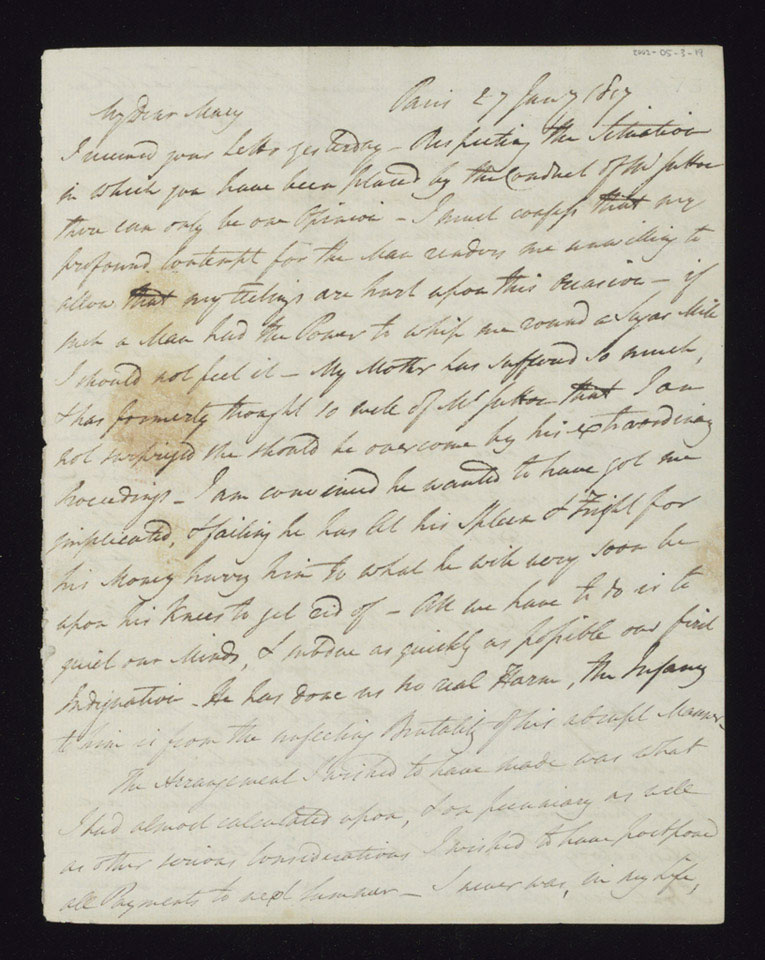 2002-05-3-19
Paris 27 Jany 1817
My Dear Mary
I received your Letter yesterday – Respecting the Situation
in which you have been placed by the Conduct of Mr Jutton
there can only be one Opinion – I must confess that my
profound Contempt for the Man renders me unwilling to
allow that my feelings are hurt upon this Occasion – if
such a Man had the Power to whip me round a
I should not feel it – My Mother has suffered so much,
& has formerly thought so well of Mr Jutton that I am
not surprized she should be overcome by his extraordinary
Proceedings – I am convinced he wanted to have got me
implicated, & failing he has let his Spleen & Fright for
his Money hurry him to what he will very soon be
upon his Knees to get rid of – All we have to do is to
quiet our Minds, & subdue as quickly as possible our first
Indignation – He has done us no real Harm, the Infamy
to him is from the unfeeling Brutality of his abrupt Manner –
The Arrangement I wished to have made was what
I had almost calculated upon, & on pecuniary as well
as other serious Considerations I wished to have postponed
all Payments to next Summer – I never was, in my life,